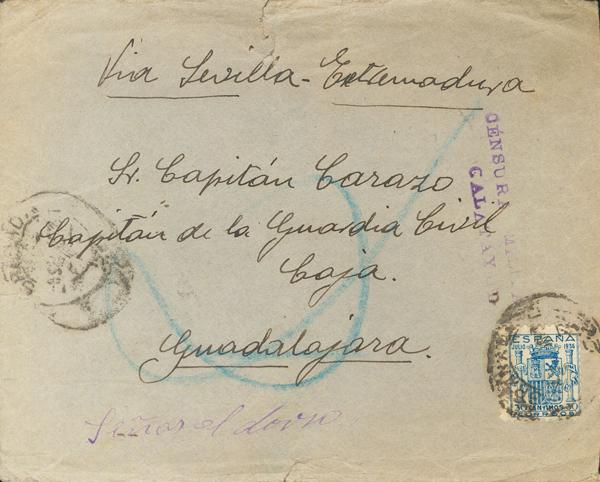 Via Sevilla - Extremadura
Sr. Capitán Carazo
Capitán de la Guardia Civil
Caja.
Guadalajara.
CENSURA
CALATAYUD
ESPAÑA
JULIO 1936
CENTIMOS
Señas al dorso